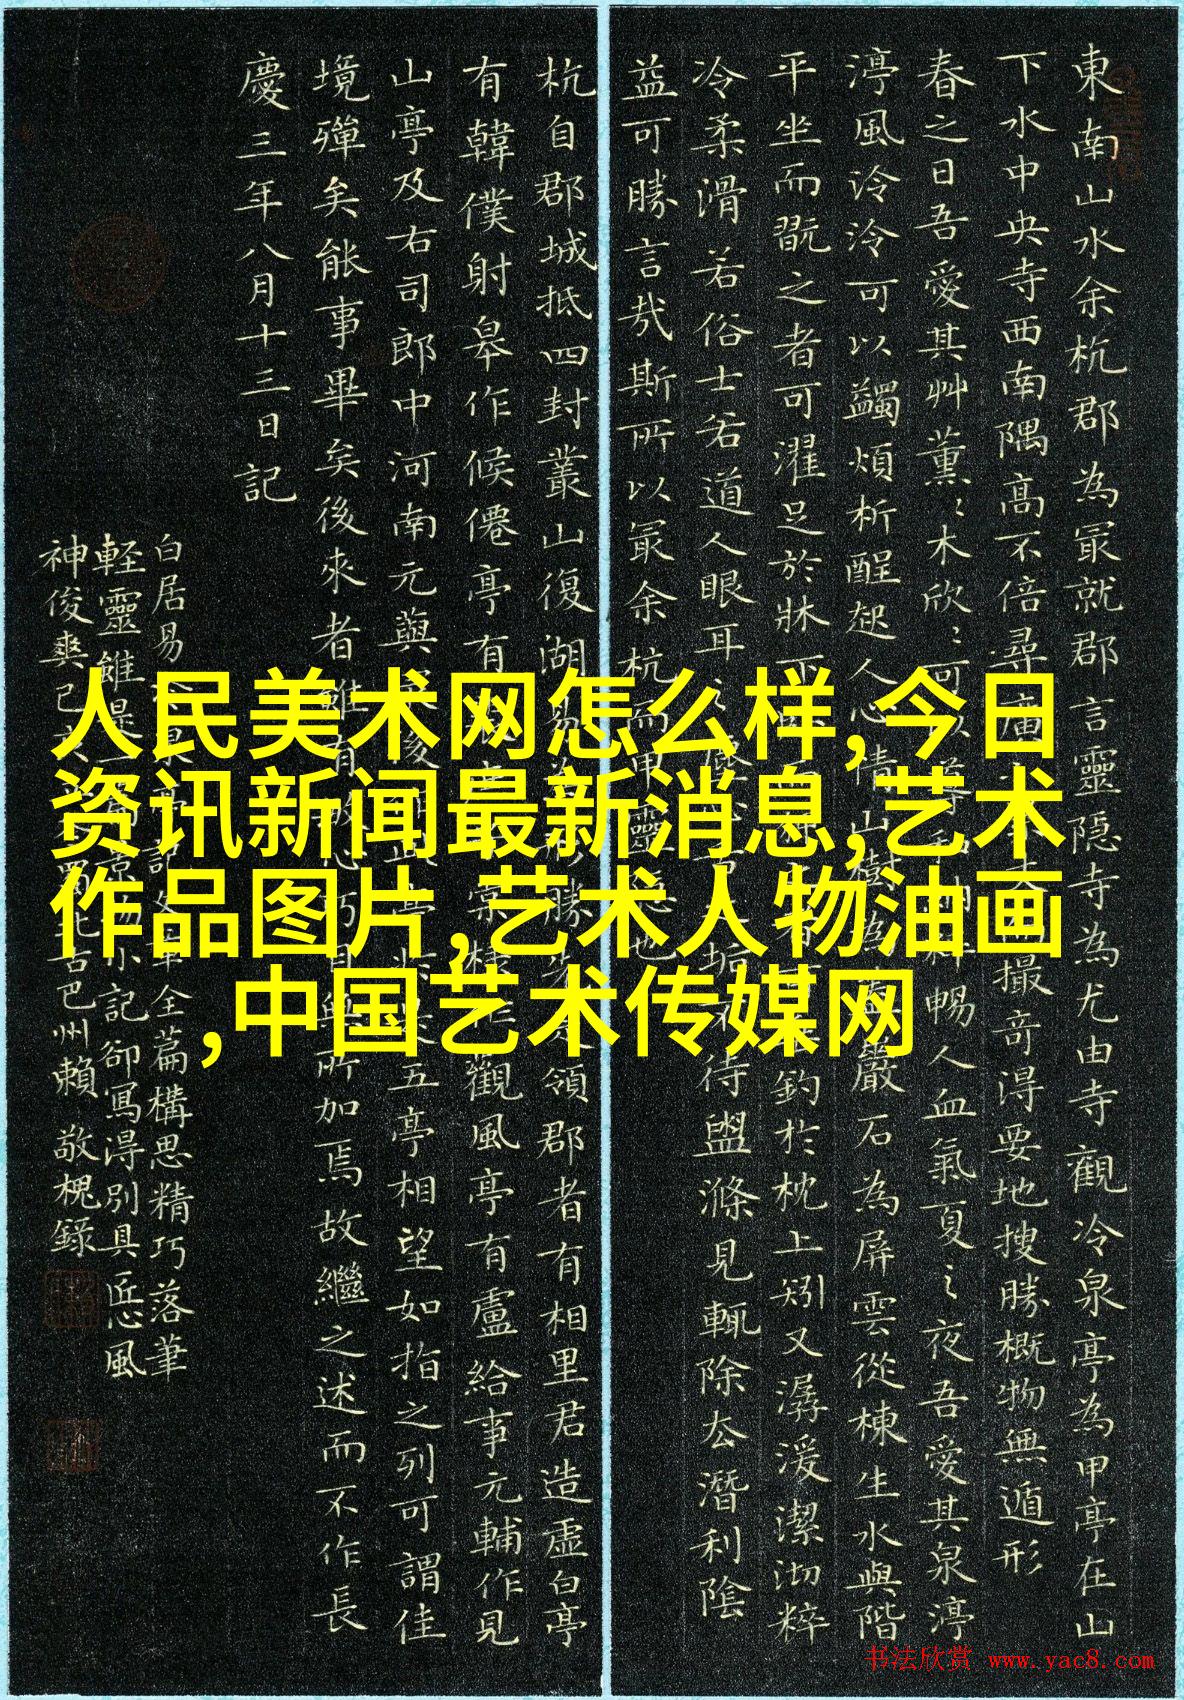 東南山水余杭郡為冣就郡言靈隐寺為尤由寺觀冷泉亭為甲亭在山
下水中央寺西南隅高不倍尋廣撮竒淂要地搜勝概物無遁形
春之日吾愛其艸薰ミ木欣ミ可以納粹暢人血氣夏之夜吾愛其泉渟
渟風泠泠可以蠲煩析酲起人心情山樹為盖巖石為屏雲從棟生水與階
平坐而翫之者可濯足於牀下釣於枕上矧又潺湲潔沏粹
冷柔滑若俗士若道人眼耳之塵垢不待盥滌見輒除去潛利陰
益可勝言㢤斯所以冣余杭而甲靈隐也
杭自郡城抵四封叢山復湖易為形勝先是領郡者有相里君造虛白亭
有韓僕射皋作候僊亭有棠棣觀風亭有盧給事元輔作見
山亭及右司郎中河南元藇最後作此亭於是五亭相望如指之列可謂佳
境殫矣能事畢矣後來者雖有敏心巧目無所加焉故繼之述而不作長
慶三年八月十三日記
白居易全篇構思精巧落筆
軽靈雖是小記卻寫淂別具匠心風
神俊爽己蜀北古巴州賴敬槐錄
人民美术网怎么样,今日
资讯新闻最新消息,艺术
作品图片,艺术人物油画
,中国艺术传媒网
书法欣赏 www.yac8.com